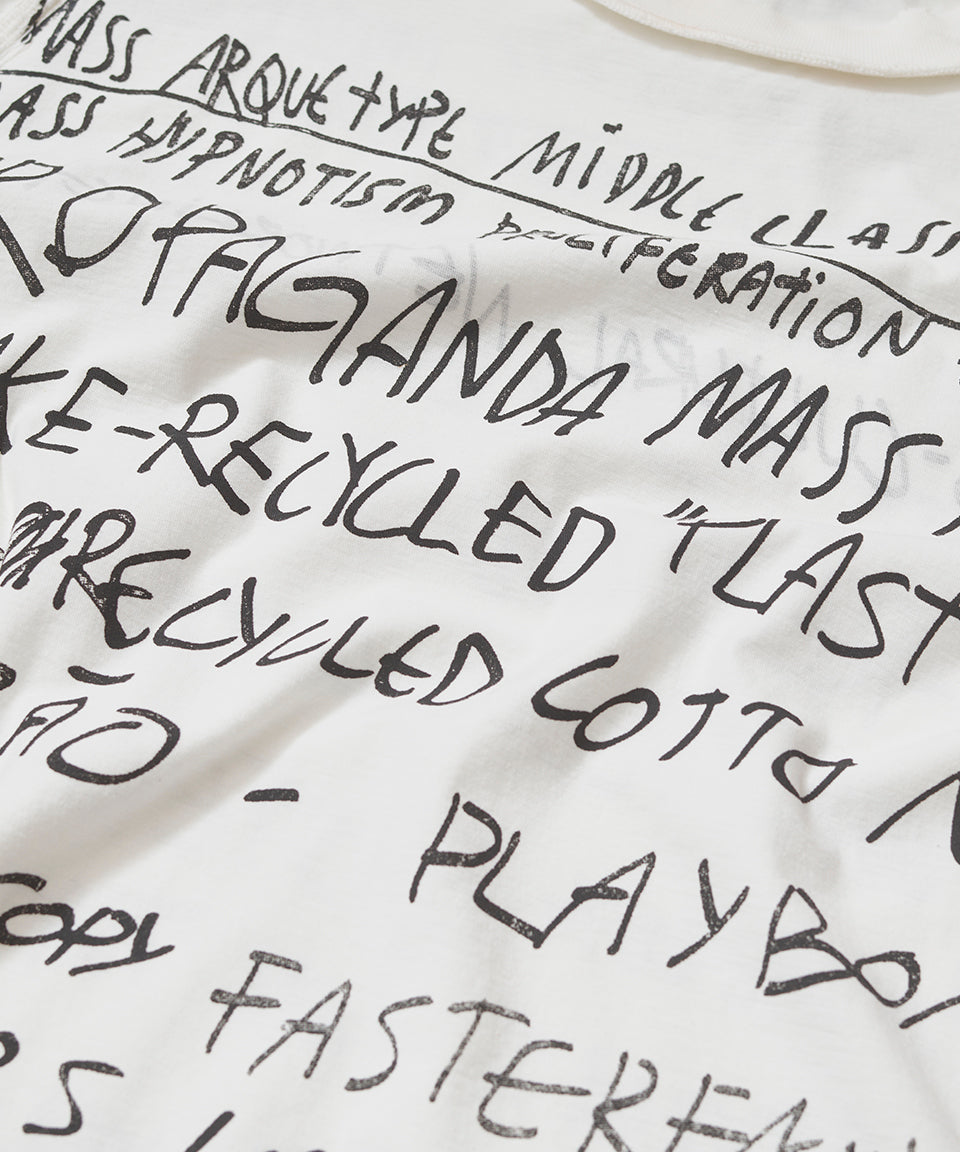 MASS ARQUETYPE MIDDLE CLASS
ASS HYPNOTISM PROLIFERATION
ROPAGANDA MASS
KE-RECYCLED "PLAST
RECYCLED COTTO N
ÃO - PLAYBOY
COPY
FASTER
S